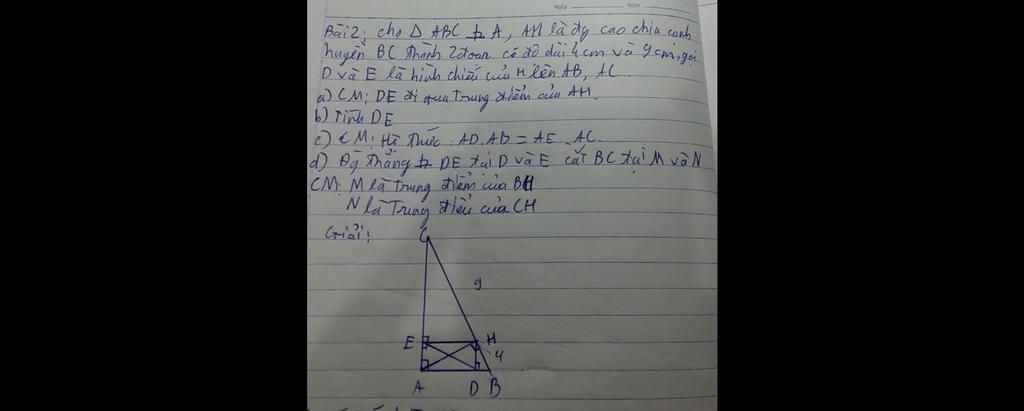 Ngày Năm
Bài 2: cho Δ ABC ⊥ A, AH là đg cao chia cạnh
huyền BC thành 2 đoạn có độ dài 4cm và 9cm, gọi
D và E là hình chiếu của H lên AB, AC.
a) CM: DE đi qua Trung điểm của AH.
b) Tính DE
c) CM: Hệ thức: AD.AB = AE.AC.
d) Đg thẳng ⊥ DE tại D và E cắt BC tại M và N
CM: M là Trung điểm của BH
N là Trung điểm của CH
Giải:
C
9
E H
4
A D B